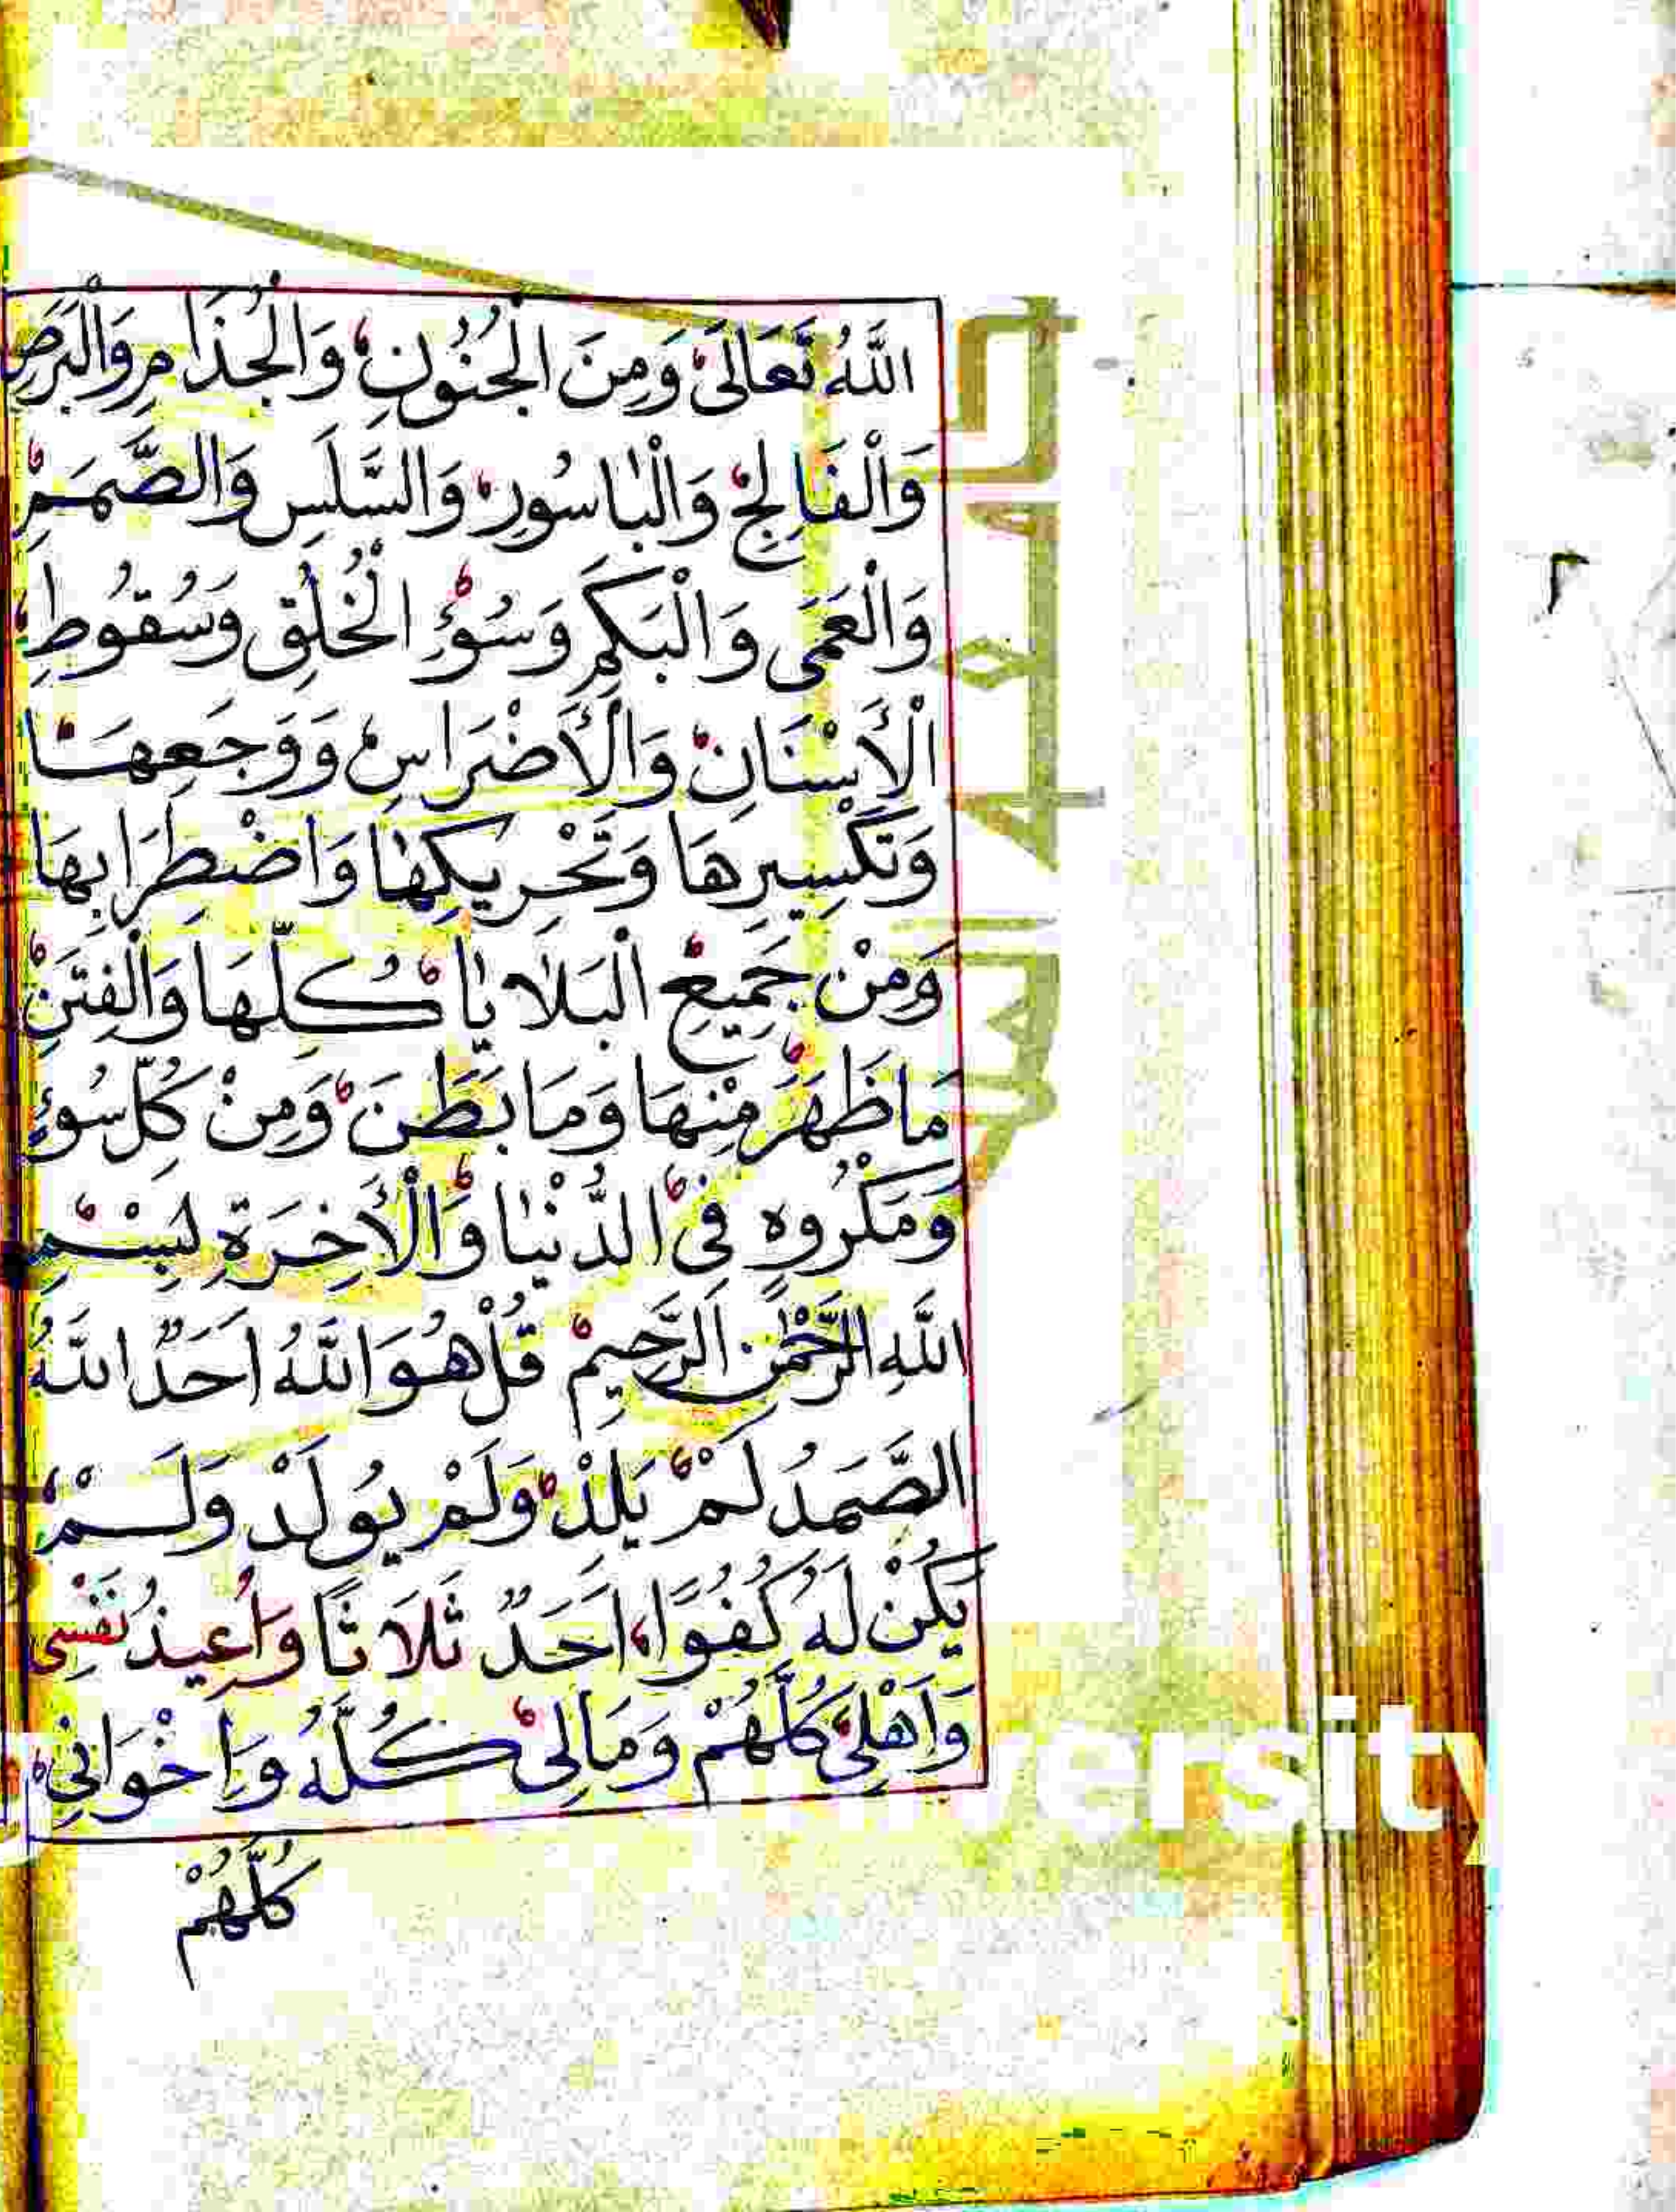 اللّٰهُ تَعَالَى وَمِنَ الْجُنُونِ وَالْجُذَامِ وَالْبَرَصِ
وَالْفَالِجِ وَالْبَاسُورِ وَالسَّلَسِ وَالصَّمَمِ
وَالْعَمَى وَالْبَكَمِ وَسُوْءِ الْخُلُقِ وَسُقُوطِ
الْأَسْنَانِ وَالْأَضْرَاسِ وَوَجَعِهَا
وَتَكْسِيرِهَا وَتَحْرِيكِهَا وَاضْطِرَابِهَا
وَمِنْ جَمِيعِ الْبَلَايَا كُلِّهَا وَالْفِتَنِ
مَا ظَهَرَ مِنْهَا وَمَا بَطَنَ وَمِنْ كُلِّ سُوءٍ
وَمَكْرُوهٍ فِى الدُّنْيَا وَالْأَخِرَةِ بِسْمِ
اللّٰهِ الرَّحْمٰنِ الرَّحِيمِ قُلْ هُوَ اللّٰهُ اَحَدٌ اللّٰهُ
الصَّمَدُ لَمْ يَلِدْ وَلَمْ يُولَدْ وَلَمْ
يَكُنْ لَهُ كُفُوًا اَحَدٌ ثَلَاثًا وَاُعِيذُ نَفْسِى
وَاَهْلِى كُلَّهُمْ وَمَالِى كُلَّهُ وَاِخْوَانِى
كُلَّهُمْ
٢
جامعة الملك
versity